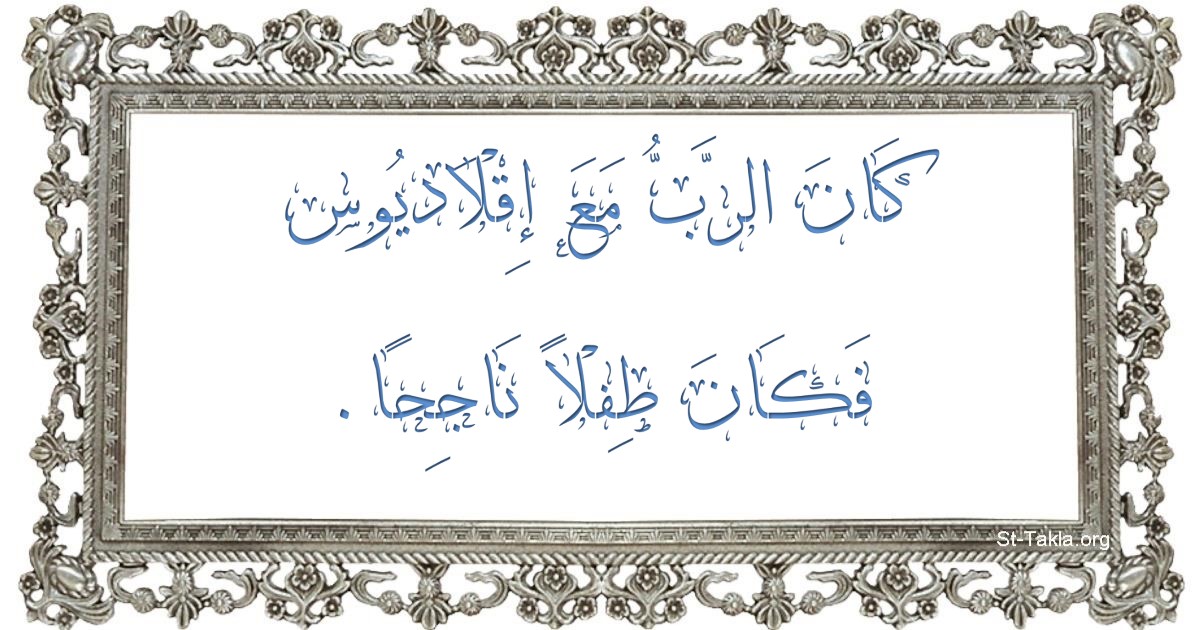 كَانَ الرَّبُّ مَعَ إِقْلَادْيُوس
فَكَانَ طِفْلاً نَاجِحًا .
St-Takla.org